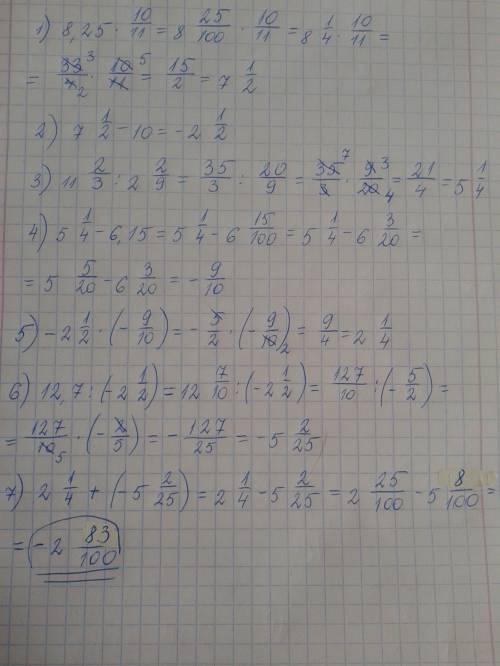 1) 8,25 · 10/11 = 8 25/100 · 10/11 = 8 1/4 · 10/11 =
= 33³/4₂ · 10⁵/11 = 15/2 = 7 1/2
2) 7 1/2 − 10 = −2 1/2
3) 11 2/3 : 2 2/9 = 35/3 : 20/9 = 35⁷/3 · 9³/20₄ = 21/4 = 5 1/4
4) 5 1/4 − 6,15 = 5 1/4 − 6 15/100 = 5 1/4 − 6 3/20 =
= 5 5/20 − 6 3/20 = − 9/10
5) −2 1/2 · (− 9/10) = − 5/2 · (− 9/10₂) = 9/4 = 2 1/4
6) 12,7 : (−2 1/2) = 12 7/10 : (−2 1/2) = 127/10 : (− 5/2) =
= 127/10₅ · (− 2/5) = − 127/25 = −5 2/25
7) 2 1/4 + (−5 2/25) = 2 1/4 − 5 2/25 = 2 25/100 − 5 8/100 =
= −2 83/100